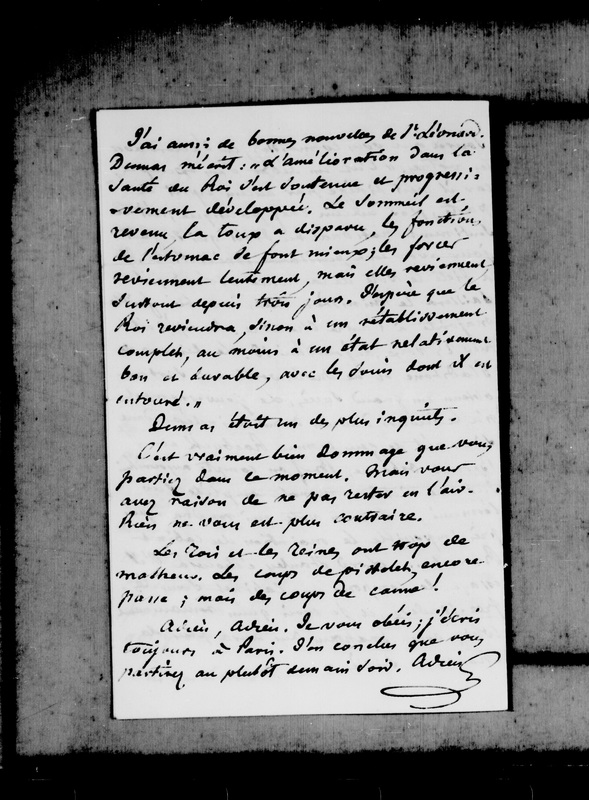 J'ai aussi de bonnes nouvelles de St Léonard.
Dumas m'écrit : "L'amélioration dans la
santé du Roi s'est soutenue et progressi-
-vement développée. Le sommeil est
revenu, la toux a disparu, les fonctions
de l'estomac se font mieux ; les forces
reviennent lentement, mais elles reviennent,
surtout depuis trois jours. J'espère que le
Roi reviendra, sinon à un rétablissement
complet, au moins à un état relativement
bon et durable, avec les soins dont il est
entouré."
Dumas étoit un des plus inquiets.
C'est vraiment bien dommage que vous
partiez dans ce moment. Mais vous
avez raison de ne pas rester en l'air.
Rien ne vous est plus contraire.
Les Rois et les Reines ont trop de
malheur. Les coups de pistolet, encore
passe ; mais des coups de canne !
Adieu, Adieu. Je vous obéis ; j'écris
toujours à Paris. J'en conclus que vous
partirez au plutôt demain soir. Adieu